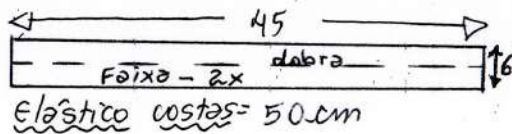 45
dobra
Faixa - 2x
6
Elástico costas= 50 cm